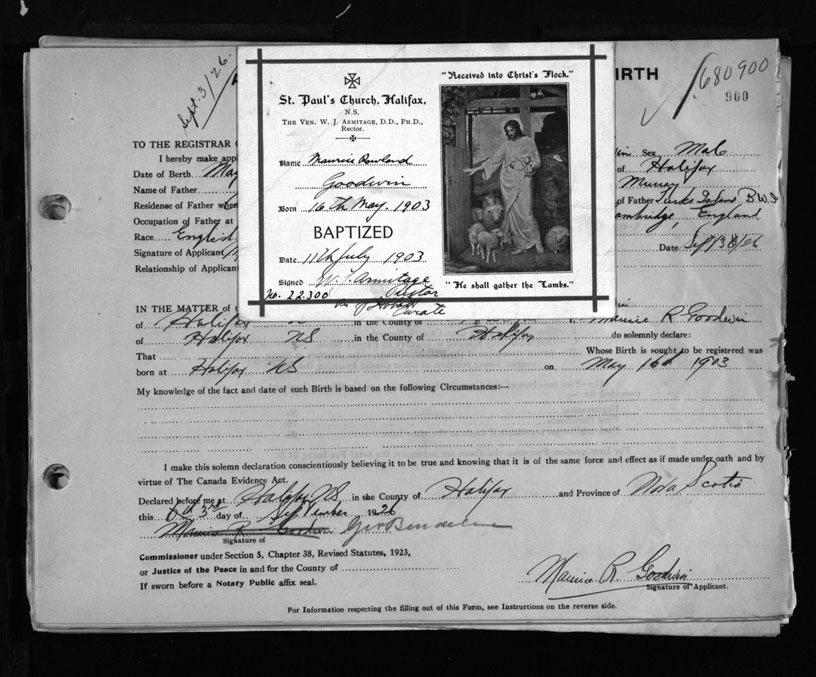 Sept. 3/26.
BIRTH
680900
900
St. Paul's Church, Halifax,
N.S.
THE VEN. W. J. ARMITAGE, D.D., PH.D.,
Rector.
Name Maurice Rowland
Goodwin
Born 16th May. 1903
BAPTIZED
Date 11th July 1903
Signed W. J. Armitage
Rector
No. 22.300
Curate
"Received into Christ's Flock."
"He shall gather the Lambs."
TO THE REGISTRAR
I hereby make app
Sex Male
Date of Birth May
of Halifax
Name of Father
Murray
Residence of Father when
of Father Turks Island, B.W.I
Occupation of Father at
Cambridge, England
Race English
Signature of Applicant
Date Sept 3rd/26
Relationship of Applicant
IN THE MATTER of
of Halifax in the County of Maurice R Goodwin
of Halifax NS in the County of Halifax do solemnly declare:
That Whose Birth is sought to be registered was
born at Halifax NS on May 16th 1903
My knowledge of the fact and date of such Birth is based on the following Circumstances:--
I make this solemn declaration conscientiously believing it to be true and knowing that it is of the same force and effect as if made under oath and by
virtue of The Canada Evidence Act.
Declared before me at Halifax NS in the County of Halifax and Province of Nova Scotia
this 3rd day of September 1926
Maurice R. Goodwin
Signature of
Commissioner under Section 5, Chapter 38, Revised Statutes, 1923,
or Justice of the Peace in and for the County of
If sworn before a Notary Public affix seal.
Maurice R. Goodwin
Signature of Applicant.
For Information respecting the filling out of this Form, see Instructions on the reverse side.